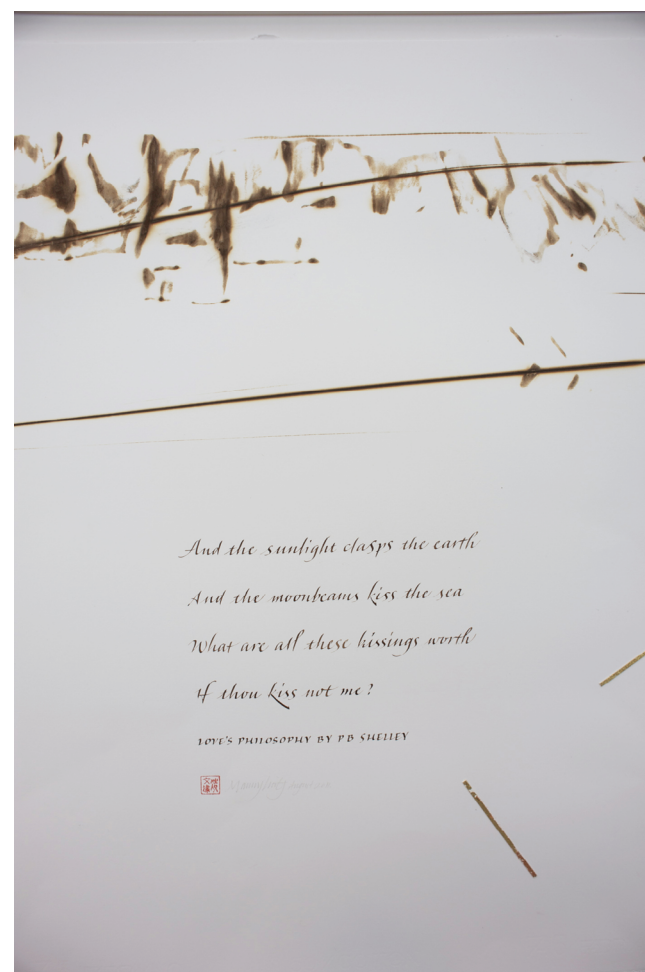 And the sunlight clasps the earth
And the moonbeams kiss the sea
What are all these kissings worth
If thou kiss not me?
LOVE'S PHILOSOPHY BY P B SHELLEY